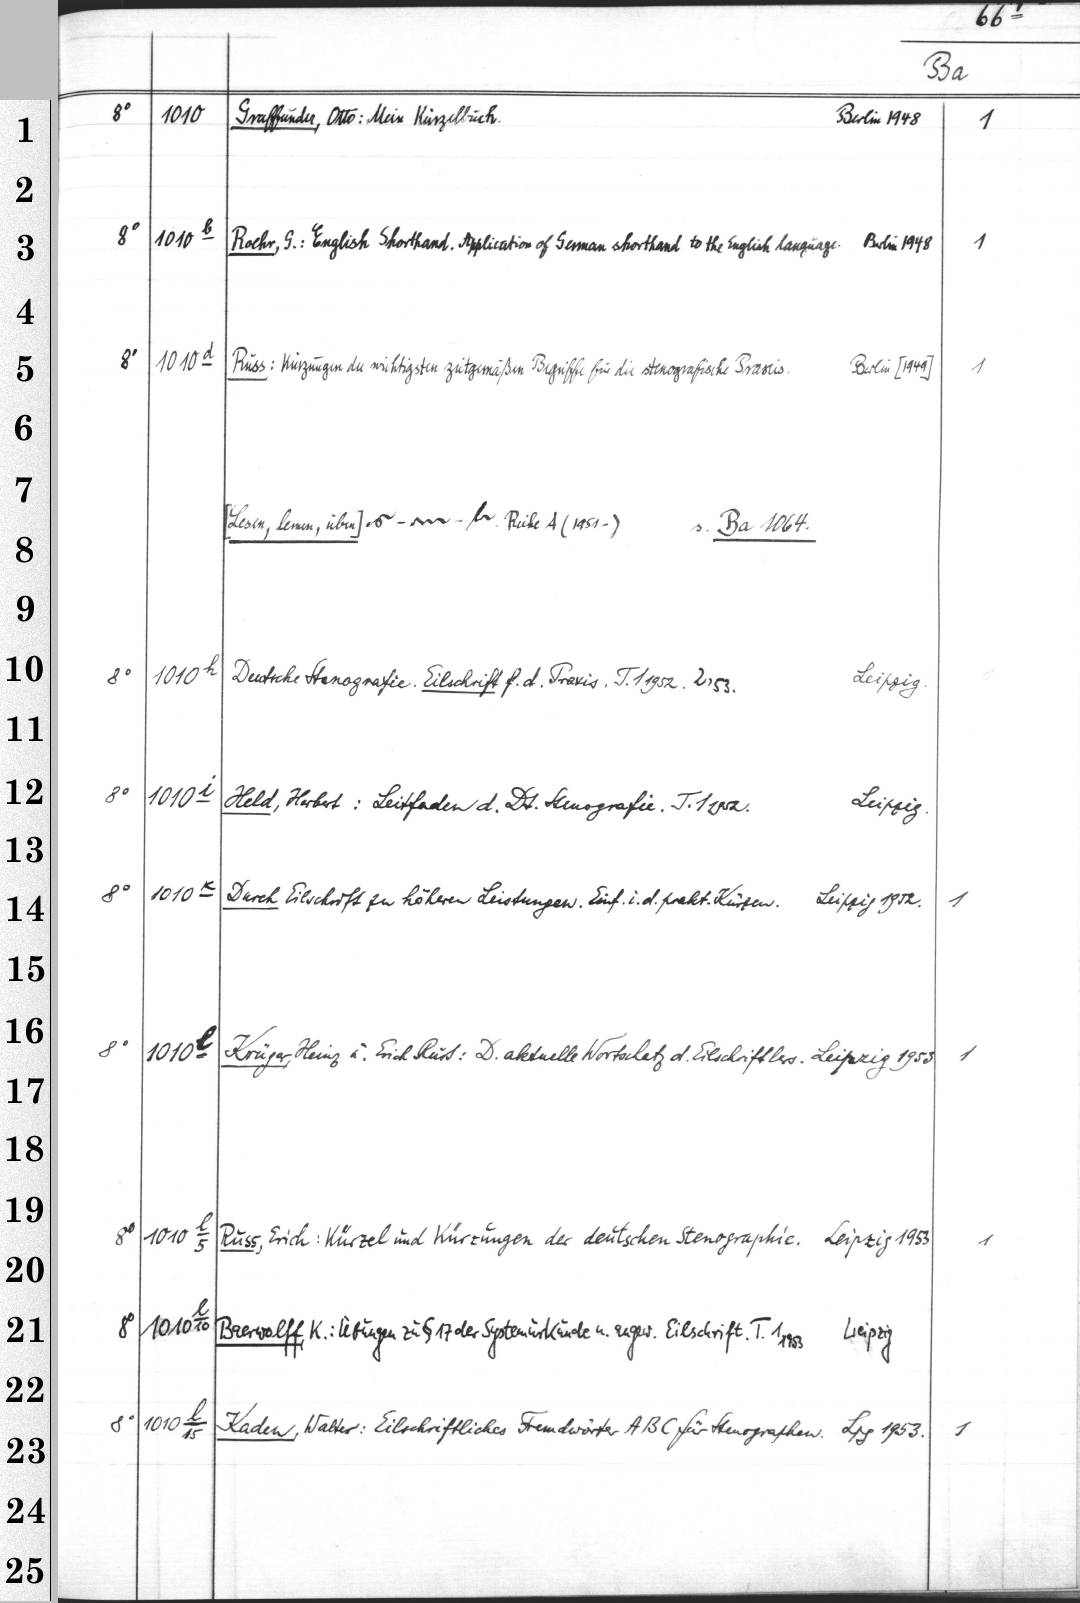 66
Ba
1 8° 1010 Graffunder, Otto: Mein Kürzelbuch. Berlin 1948 1
2
3 8° 1010 b Roehr, G.: English Shorthand. Application of German shorthand to the English language. Berlin 1948 1
4
5 8° 1010 d Russ: Kürzungen der wichtigsten zeitgemäßen Begriffe für die stenografische Praxis. Berlin [1949] 1
6
7
[Lesen, lernen, üben] Reihe A (1951-) s. Ba 1064.
8
9
10 8° 1010 h Deutsche Stenografie. Eilschrift f. d. Praxis. T. 1 1952. 2,53. Leipzig.
11
12 8° 1010 i Held, Herbert: Leitfaden d. Dt. Stenografie. T. 1 1952. Leipzig.
13
14 8° 1010 k Durch Eilschrift zu höheren Leistungen. Einf. i. d. prakt. Kürzen. Leipzig 1952. 1
15
16 8° 1010 l Krüger, Heinz u. Erich Russ: D. aktuelle Wortschatz d. Eilschriftlers. Leipzig 1953 1
17
18
19 8° 1010 l/5 Russ, Erich: Kürzel und Kürzungen der deutschen Stenographie. Leipzig 1953 1
20
21 8° 1010 l/10 Baerwolff, K.: Übungen zu § 17 der Systemurkunde u. angew. Eilschrift. T. 1 1953 Leipzig
22
8° 1010 l/15 Kaden, Walter: Eilschriftliches Fremdwörter ABC für Stenographen. Lpg 1953. 1
23
24
25